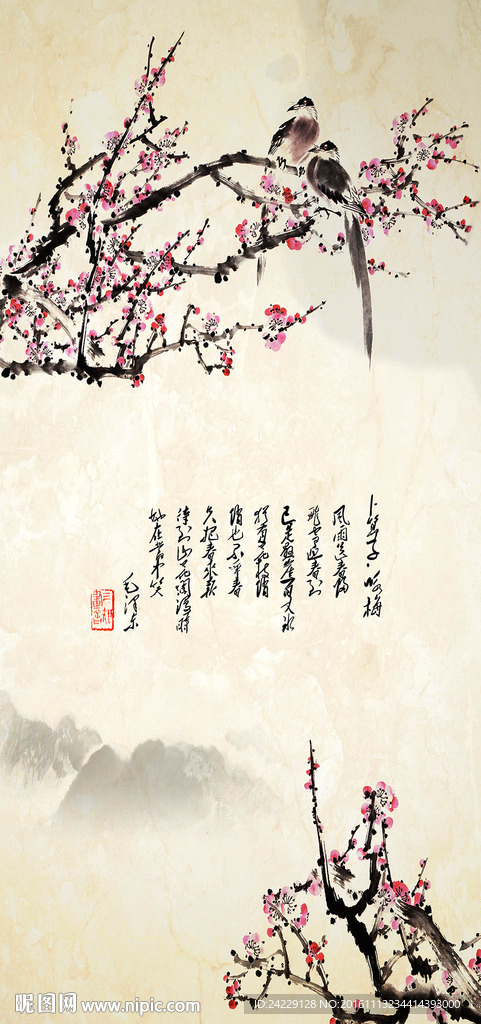 卜算子·咏梅
風雨送春歸
飛雪迎春到
已是懸崖百丈冰
猶有花枝俏
俏也不爭春
只把春來報
待到山花爛漫時
她在叢中笑
毛澤東
昵图网 www.nipic.com
ID:24229128 NO:20161113234414393000